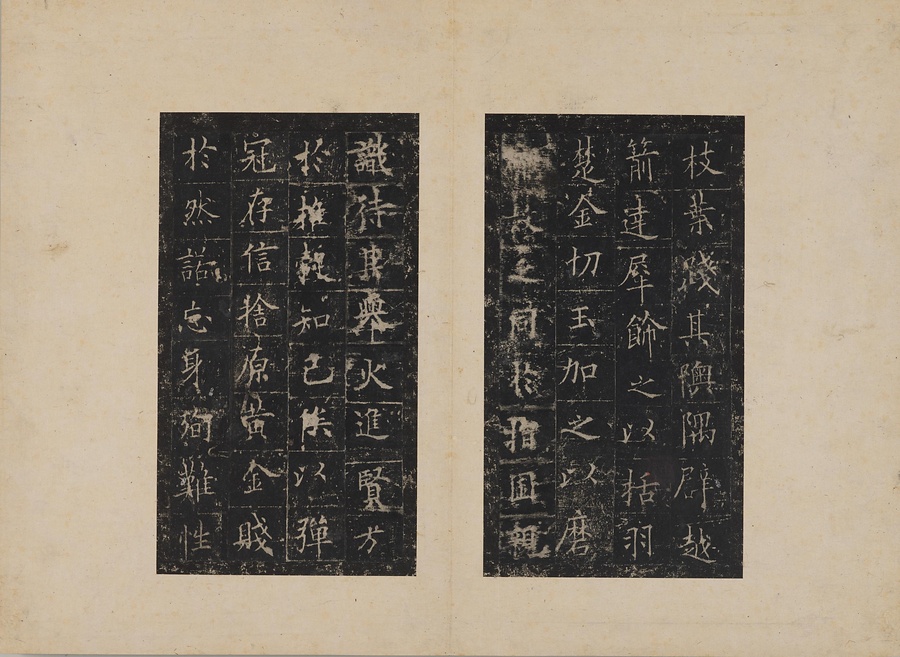 枝葉踐其隩隅辟越
箭達犀飾之以括羽
楚金切玉加之以磨
乏同於指囷親
識待其舉火進賢方
於推轂知己俟以彈
冠存信捨原黃金賤
於然諾忘身殉難性